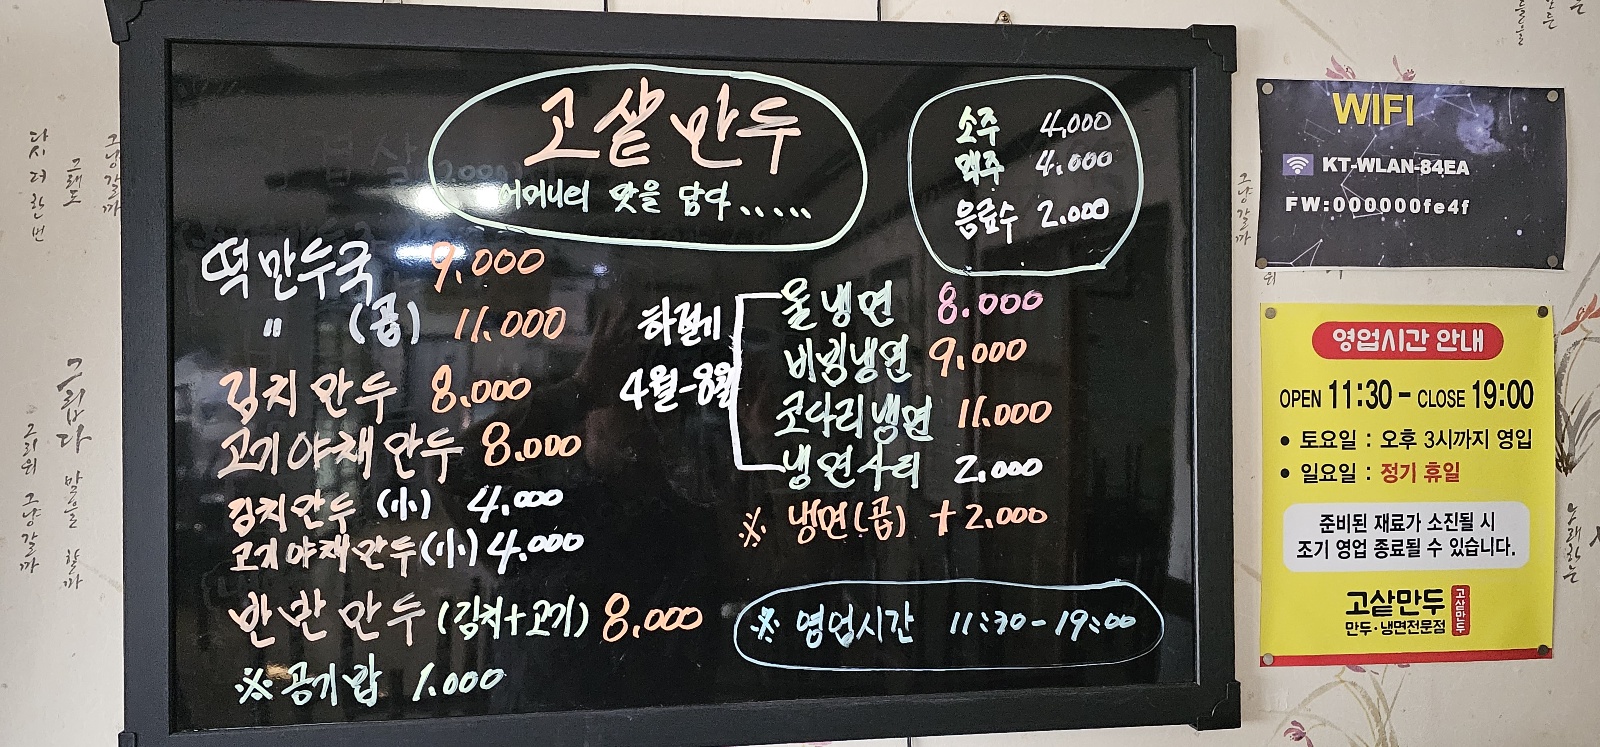 고샅만두
어머니의 맛을 담아.....
소주 4,000
맥주 4.000
음료수 2.000
떡만두국 9.000
" (곱) 11.000
김치만두 8.000
고기야채만두 8.000
김치만두 (小) 4.000
고기야채만두 (小) 4.000
반반만두 (김치+고기) 8,000
※ 공기밥 1.000
하절기
4월-8월
물냉면 8.000
비빔냉면 9.000
코다리냉면 11.000
냉면사리 2.000
※ 냉면(곱) +2.000
※ 영업시간 11:30-19:00
WIFI
KT-WLAN-84EA
FW:000000fe4f
영업시간 안내
OPEN 11:30 - CLOSE 19:00
• 토요일 : 오후 3시까지 영업
• 일요일 : 정기 휴일
준비된 재료가 소진될 시
조기 영업 종료될 수 있습니다.
고샅만두
만두·냉면전문점
고샅만두
다시 더 한번
그래도
그냥 갈까
그립다
말을 할까
그리워
그냥 갈까
그냥 갈까